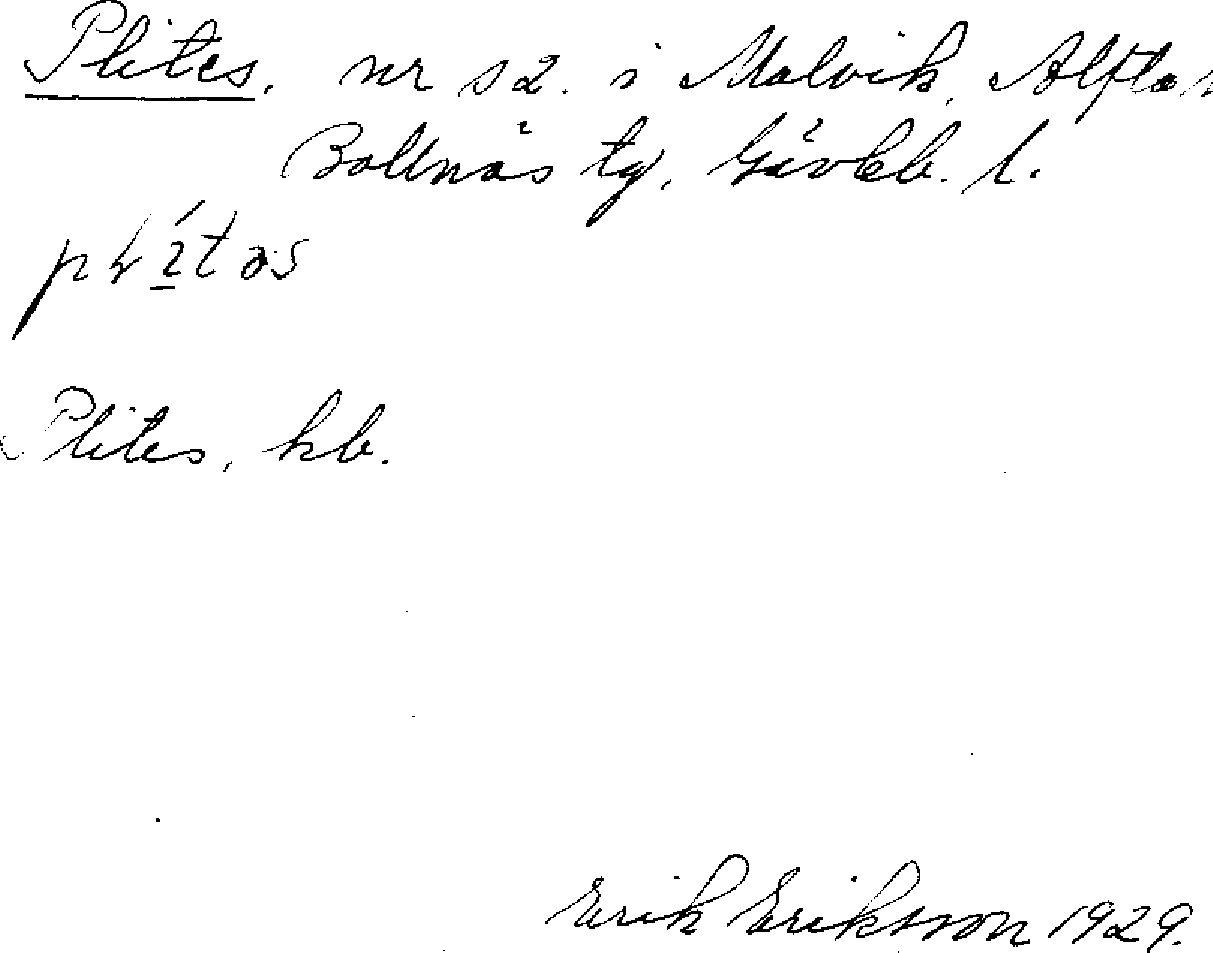 Plites, nr 52. i Malvik, Alfta
Bollnäs tg, Gävleb. l.
Plites, kb.
Erik Eriksson 1929.